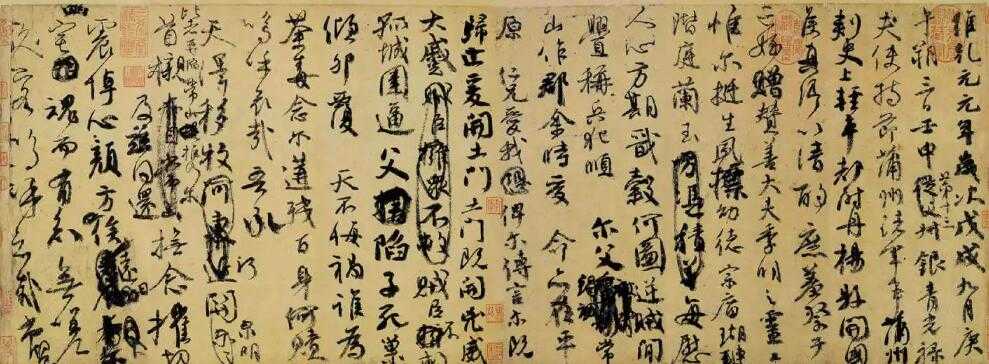 維乾元元年歲次戊戌九月庚
午朔三日壬申第十三從父叔銀青光祿
夫使持節蒲州諸軍事蒲州
刺史上輕車都尉丹楊縣開國
侯真卿以清酌庶羞祭于
亡姪贈贊善大夫季明之靈曰
惟爾挺生夙標幼德宗廟瑚璉
階庭蘭玉方憑積善每慰
人心方期戩穀何圖逆賊閒
釁稱兵犯順爾父常
山作郡余時受命亦在平
原仁兄愛我俾爾傳言爾既
歸止爰開土門土門既開凶威
大蹙賊臣擁衆不救賊臣不救
孤城圍逼父陷子死巢
傾卵覆天不悔禍誰為
荼毒念爾遘殘百身何贖
嗚呼哀哉吾承
天澤移牧河關泉明
比者再陷常山攜爾
首櫬及茲同還撫念摧切
震悼心顏方俟遠日
宅魂而有知無嗟
久客嗚呼哀哉尚饗